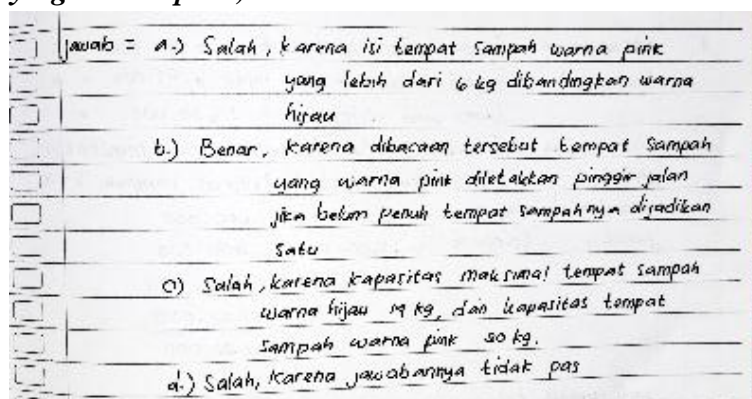 jawab = a.) Salah, karena isi tempat sampah warna pink
yang lebih dari 6 kg dibandingkan warna
hijau
b.) Benar, karena dibacaan tersebut tempat sampah
yang warna pink diletakkan pinggir jalan
jika belum penuh tempat sampahnya dijadikan
satu
c) Salah, karena kapasitas maksimal tempat sampah
warna hijau kg, dan kapasitas tempat
sampah warna pink kg.
d.) Salah, karena jawabannya tidak pas